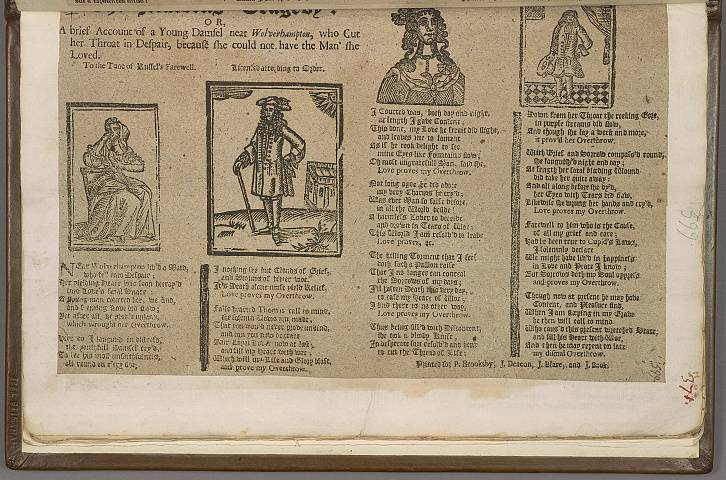 Tragedy:
OR,
A brief Account of a Young Damsel near Wolverhampton, who Cut
her Throat in Despair, because she could not have the Man she
Loved.
To the Tune of, Russel's Farewell. Licensed according to Order.
NEar Wolverhampton liv'd a Maid,
who fell into Despair;
Her yielding Heart was soon betray'd
into Love's fatal Snare:
A young man courted her, we find,
and seeming Love did show;
But after all, he prov'd unkind,
which wrought her Overthrow.
Here do I languish in distress,
the youthful Damsel cry'd,
To see his most unfaithfulness,
all round on e'ery side,
I nothing see but Clouds of Grief,
and Storms of bitter woe,
It's Death alone must yield Relief,
Love proves my Overthrow.
False hearted Thomas call to mind,
the solemn Vows you made,
That you would never prove unkind,
and can you now degrade
Your Loyal Love now at last,
and fill my Heart with woe;
Which will my Life and Glory blast,
and prove my Overthrow.
I Courted was, both day and night,
at length I gave Consent;
This done, my Love he seem'd to slight,
and leaves me to lament
As if he took delight to see
mine Eyes like Fountains flow;
Oh most ungrateful Man, said she,
Love proves my Overthrow.
Not long agoe he did adore
my very Charms he cry'd;
Was ever Man so false before,
in all the World beside!
A harmless Lover to deceive
and drown in Tears of Woe:
This World I am resolv'd to leave
Love proves, &c.
The killing Torment that I feel
with such a Passion raise
That I no longer can conceal
the Sorrows of my days;
I'll hasten Death this very day,
to ease my Heart of Woe;
I find there is no other way,
Love proves my Overthrow.
Thus being fill'd with Discontent,
she took a bloody Knife;
In desperate sort resolv'd and bent
to cut the Thread of Life:
Down from her Throat the reeking Gore,
in purple streams did flow,
And though she lay a week and more,
it prov'd her Overthrow.
With Grief and Sorrow compass'd round,
she languish'd night and day;
At length her fatal bleeding Wound
did take her quite away:
And all along before she dy'd,
her Eyes with Tears did flow,
Likewise she wrung her hands and cry'd,
Love proves my Overthrow.
Farewel to him who is the Cause,
of all my grief and care;
Had he been true to Cupid's Laws,
I solemnly declare
We might have liv'd in happiness
in Love and Peace I know;
But Sorrows doth my Soul oppress
and proves my Overthrow.
Though now at present he may have
Content, and Pleasure find,
When I am sleeping in my Grave
he then will call to mind
Who caus'd this present wretched State,
and fill his Heart with Woe,
And then he may repent too late
my dismal Overthrow.
Printed for P. Brooksby, J. Deacon, J. Blare, and J. Back.
399
374